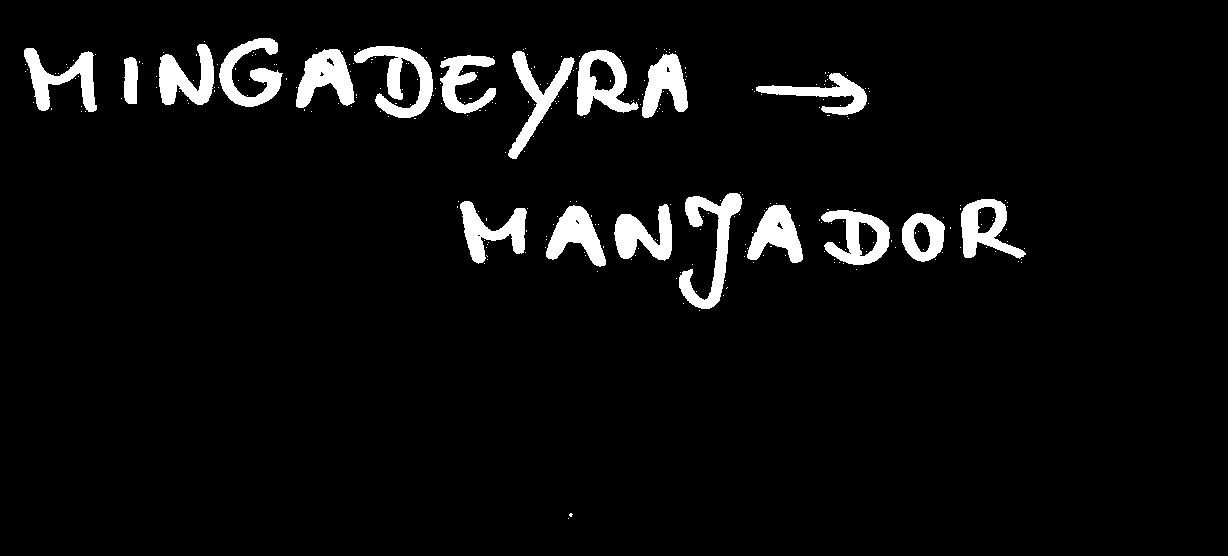 MINGADEYRA →
MANJADOR